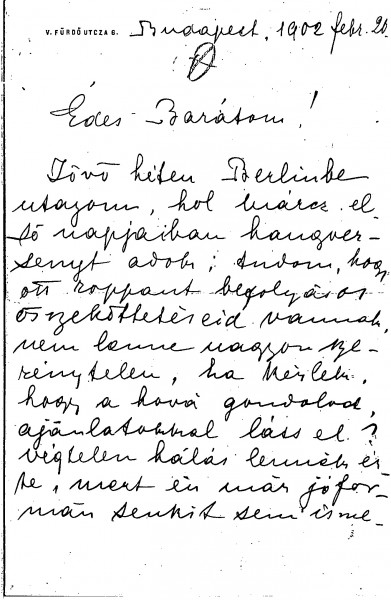 V. FÜRDŐ UTCZA 6. Budapest, 1902 febr. 20.
Édes Barátom!
Jövő héten Berlinbe
utazom, hol márcz. el-
ső napjaiban hangver-
senyt adok; tudom, hogy
ott roppant befolyásos
összeköttetéseid vannak,
nem lenne nagyon sze-
rénytelen, ha kérlek,
hogy a hová gondolod,
ajánlatokkal láss el?
Végtelen hálás lennék ér-
te, mert én már jófor-
mán senkit sem isme-